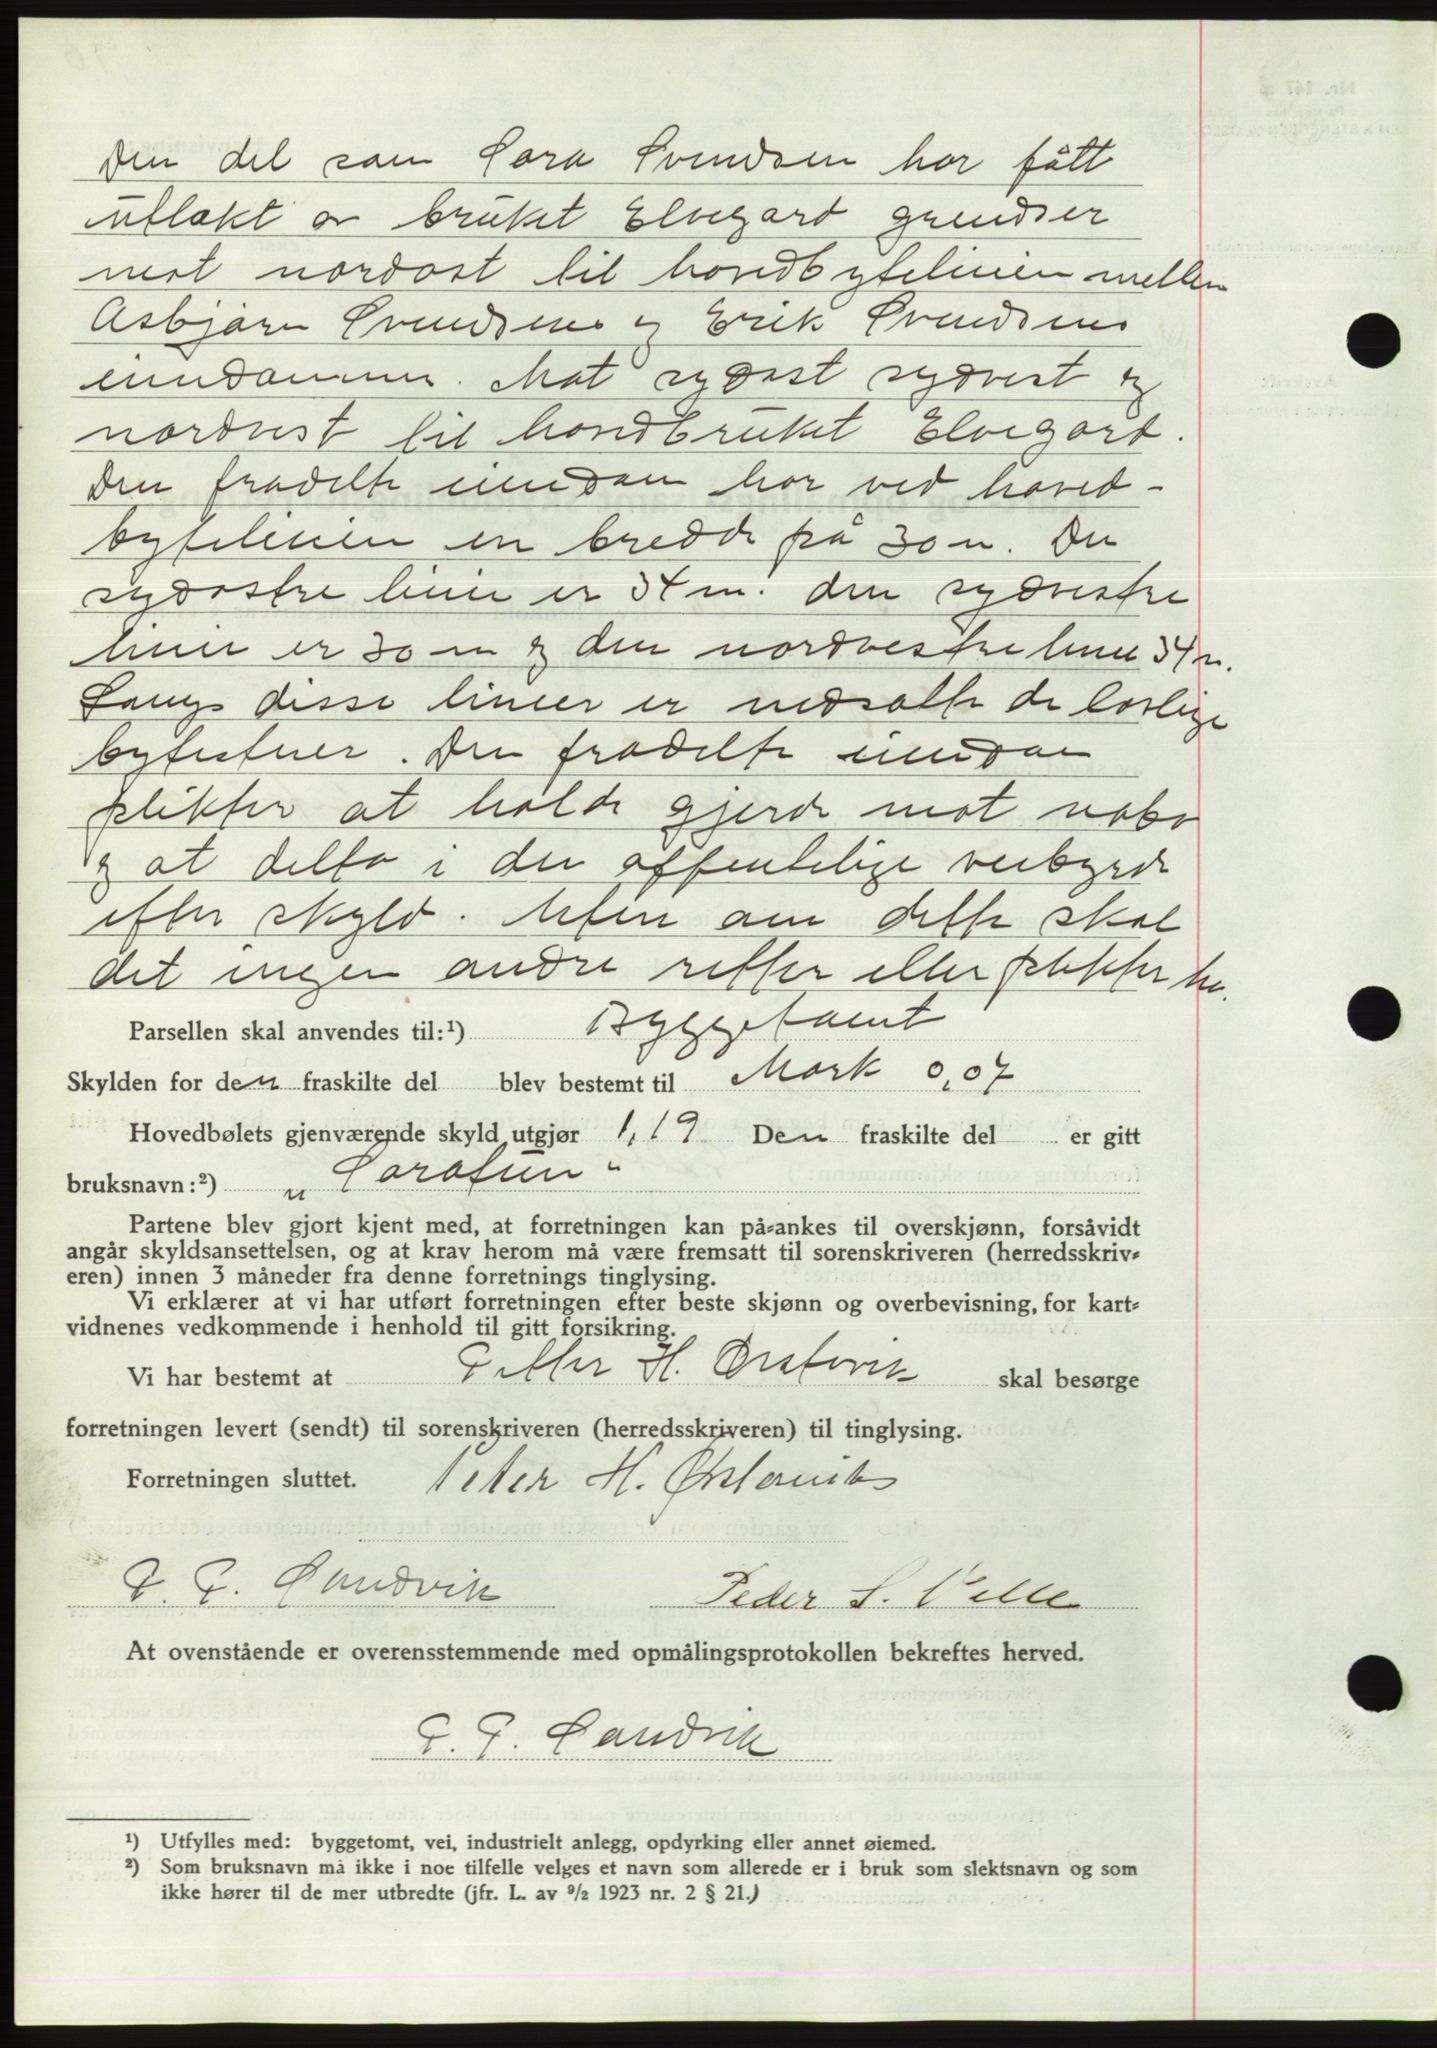 Den del som Lara Svendsen har fått
utlakt av bruket Elvegard grendser
mot nordost til hovedbytelinien mellem
Asbjørn Svendsens og Erik Svendsens
eiendommer. Mot sydost sydvest og
nordvest til hovedbruket Elvegard.
Den fradelte eiendom har ved hoved-
bytelinien en bredde på 30 m. Den
sydostre linie er 34 m. den sydvestre
linie er 30 m og den nordvestre linie 34 m.
Langs disse linier er nedsatte de lovlige
bytestener. Den fradelte eiendom
plikter at holde gjerde mot nabo
og at delta i den offentelige veibyrde
efter skyld. Uten om dette skal
det ingen andre retter eller plikter ha.
Parsellen skal anvendes til:¹) Byggetomt
Skylden for den fraskilte del blev bestemt til Mark 0,07
Hovedbølets gjenværende skyld utgjør 1,19 Den fraskilte del er gitt
bruksnavn:²) „Laratun“
Partene blev gjort kjent med, at forretningen kan på-ankes til overskjønn, forsåvidt
angår skyldsansettelsen, og at krav herom må være fremsatt til sorenskriveren (herredsskriv-
eren) innen 3 måneder fra denne forretnings tinglysing.
Vi erklærer at vi har utført forretningen efter beste skjønn og overbevisning, for kart-
vidnenes vedkommende i henhold til gitt forsikring.
Vi har bestemt at Petter H. Ørstavik skal besørge
forretningen levert (sendt) til sorenskriveren (herredsskriveren) til tinglysing.
Forretningen sluttet. Peter H. Ørstavik
P. P. Sandvik Peder S. Velle
At ovenstående er overensstemmende med opmålingsprotokollen bekreftes herved.
P. P. Sandvik
¹) Utfylles med: byggetomt, vei, industrielt anlegg, opdyrking eller annet øiemed.
²) Som bruksnavn må ikke i noe tilfelle velges et navn som allerede er i bruk som slektsnavn og som
ikke hører til de mer utbredte (jfr. L. av ⁹/₂ 1923 nr. 2 § 21.)